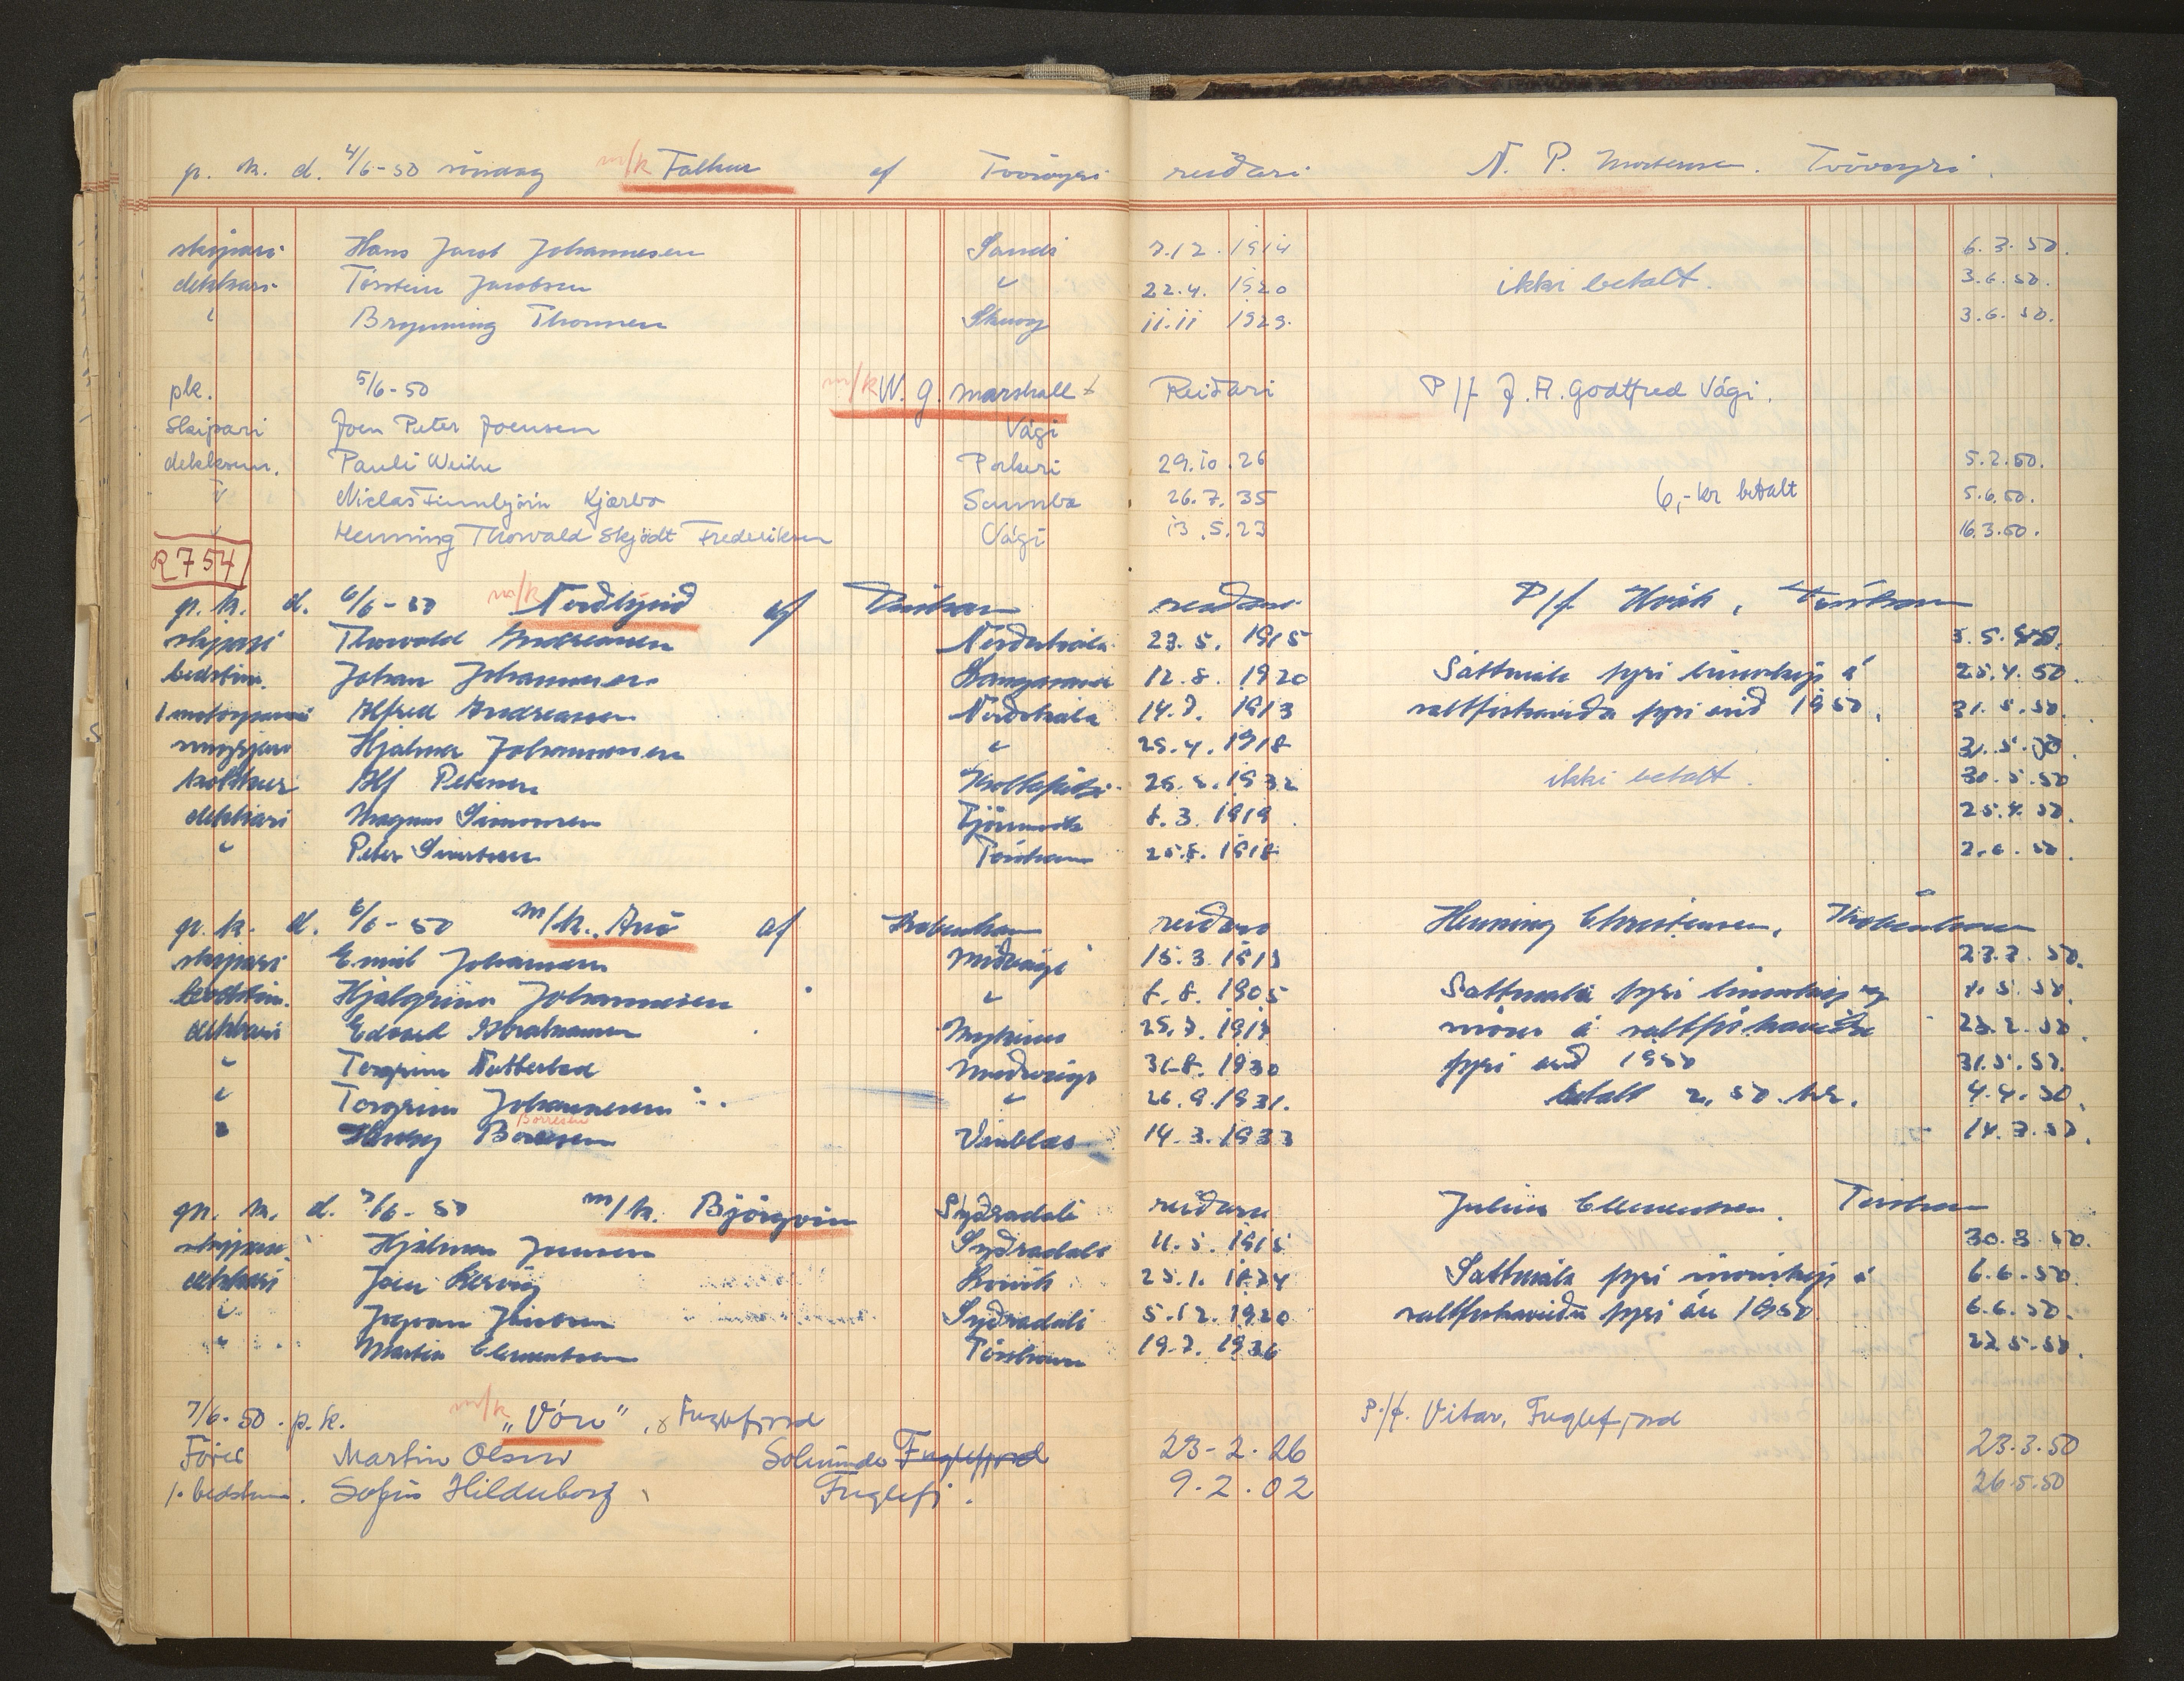 p. k. d. 4/6-50 m/k Falkur af Tvöroyri reiðari N. P. Mortensen. Tvöroyri.
skipari Hans Jacob Johannesen Sandi 7.12.1914 6.3.50.
dekkari Torstein Jacobsen " 22.4. 1920 ikki betalt. 3.6.50.
" Brynning Thomsen Skuoy 11.11 1929. 3.6.50.
plk. 5/6-50 m/k W. g. Marshall Reiðari P/f J. A. Godtfred Vági.
Skipari Joen Peter Joensen Vági
dekksm. Pauli Weihe Porkeri 29.10.26 5.2.50.
" Niclas Finnbjörn Kjærbo Sumba 26.7.35 6,- kr betalt 5.6.50.
" Henning Thorvald Skjödt Frederiksen Vági 13.5.23 16.3.50.
R 754
p. k. d. 6/6-50 m/k Norðlýsið af Tórshavn reiðari P/f. , Tórshavn
skipari Thorvald Andreasen Norðskála 23.5. 1915 3.5.
bedstm. Johan Johannesen 12.8. 1920 Sáttmála fyri línuskip á 25.4.50.
1 motorpassari Alfred Andreasen Norðskála 14.7. 1913 saltfiskaveiðu fyri árið 1950. 31.5.50.
Hjalmar Johannesen " 25.4.1918 31.5.50.
kokkur Alf Petersen Kollafirði 1932 ikki betalt. 30.5.50
dekkari Magnus Simonsen 8.3.1919. 25.4.50.
" Peter Sivertsen Tórshavn 25.8.1918 2.6.50.
p. k. d. 6/6-50 m/k. Anö af København reiðari Henning Christensen, København
skipari Emil Johannesen Miðvági 15.3.1913
bedstm. Hjalgrim Johannesen " 8.8.1905 Sáttmála fyri línuskip og 4.5.50.
dekkari Edvard Abrahamsen Mykines 25.7. snöri á saltfiskaveiðu
" Torgrim Nattestad Miðvági 31.8.1930 fyri árið 1950 31.5.50.
" Torgrim Johannesen " 26.9.1931. betalt 2,50 kr. 4.4.50.
" Henry Borresen Borresen 14.3.1933 14.3.50.
p. k. d. 7/6-50 m/k. Björgvin Syðradali reiðari Julius Clementsen. Tórshavn
skipari Hjalmar Jensen Syðradali 11.5.1915 30.3.50.
dekkari Joen Kervig 25.1. Sáttmála fyri snöriskip á 6.6.50.
" Jógvan Syðradali 5.12.1920 saltfiskaveiðu fyri ár 1950. 6.6.50.
" Martin Clementsen Tórshavn 19.7.1936 22.5.50.
7/6-50. p.k. m/k „Vón”, Fuglefjord P/f. Vitar, Fuglefjord
Förer Martin Olsen Solmunde Fuglefjord 23-2.26 23.3.50
1. bedstm. Sofus Hildeborg Fuglefj. 9.2.02 26.5.50